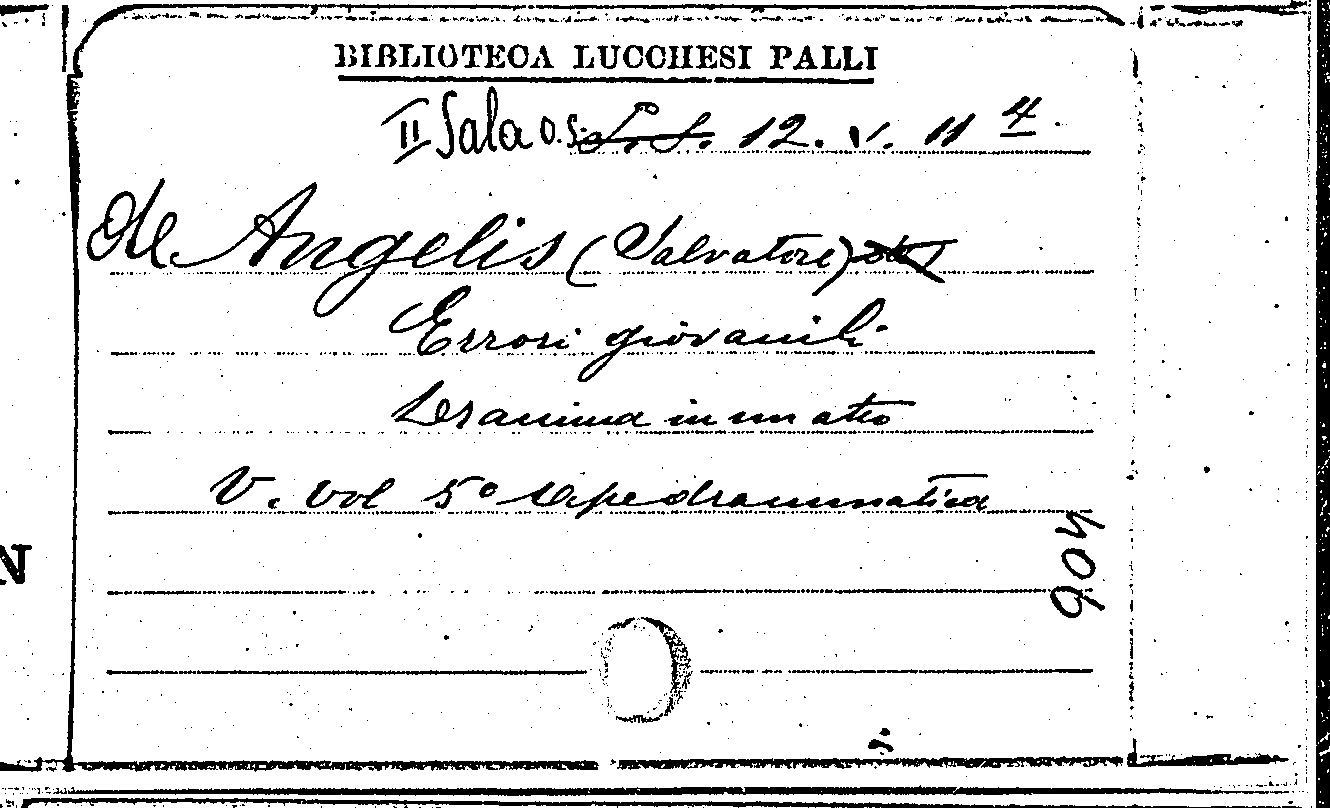 BIBLIOTECA LUCCHESI PALLI
II Sala O. S. L. S. 12. V. 11 4.
De Angelis (Salvatore)
Errori giovanili
Dramma in un atto
V. vol 5° Ape drammatica
904
N